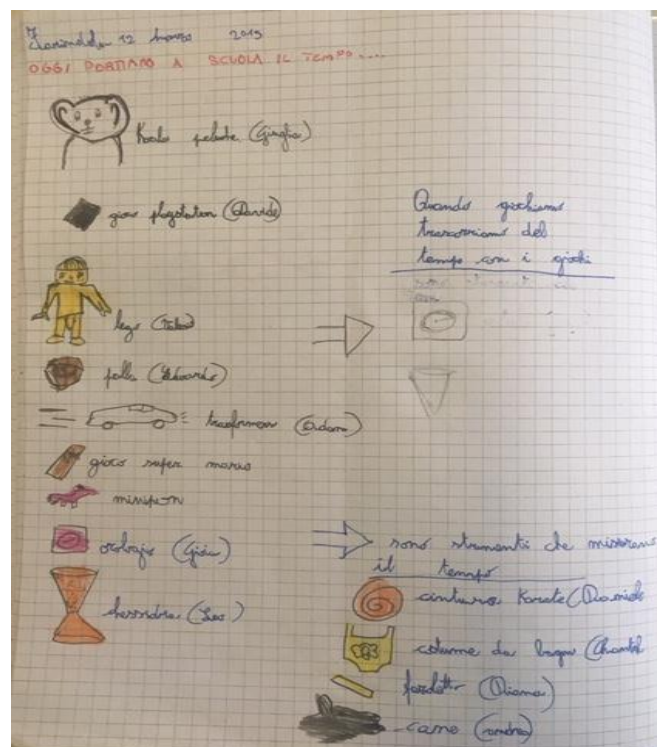 12 marzo 2019
OGGI PORTIAMO A SCUOLA IL TEMPO....
Koala peluche (Giuglia)
gioco playstation (Davide)
lego
palla (Edoardo)
trasformer (Adam)
gioco super mario
minipon
orologio (Gioia)
(Leo)
Quando giochiamo
trascorriamo del
tempo con i giochi
sono strumenti che misurano
il tempo
cintura Karate (Daniele
costume da bagno (Chantal
(Diana)
cane (Andrea)